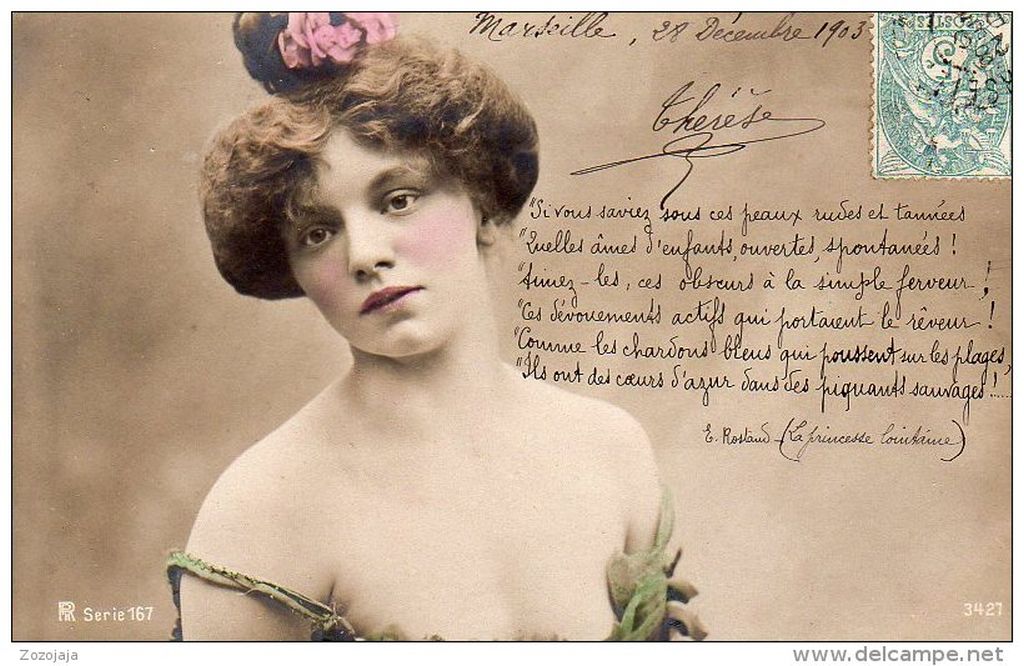 Marseille, 28 Décembre 1903
Thérèse
"Si vous saviez sous ces peaux rudes et tannées
"Quelles âmes d'enfants, ouvertes, spontanées !
"Aimez-les, ces obscurs à la simple ferveur !
"Ces dévouements actifs qui portaient le rêveur !
"Comme les chardons bleus qui poussent sur les plages,
"Ils ont des cœurs d'azur dans des piquants sauvages !.....
E. Rostand (La princesse lointaine)
Serie 167
3427
Zozojaja
www.delcampe.net